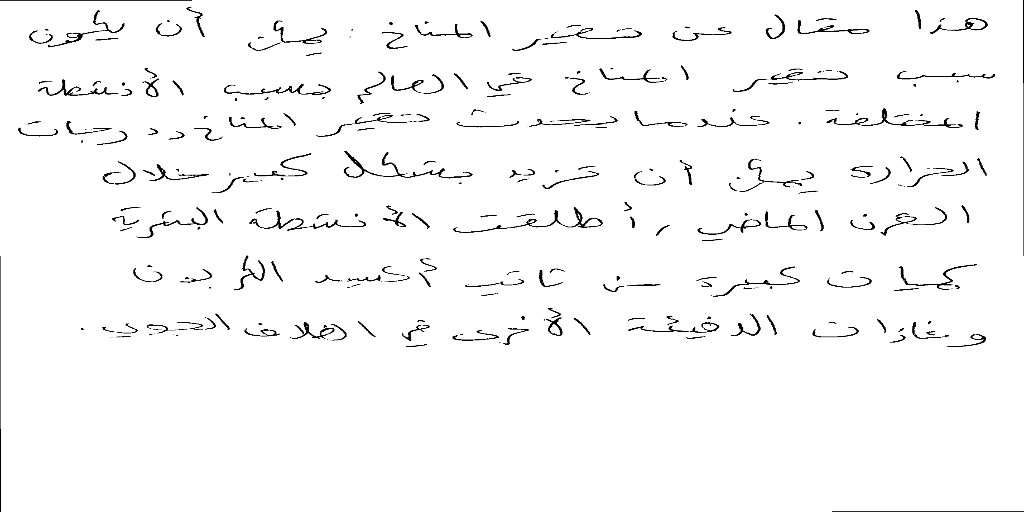 هذا مقال عن تغير المناخ . يمكن أن يكون
سبب تغير المناخ في العالم بسبب الأنشطة
المختلفة . عندما يحدث تغير المناخ درجات
الحرارة يمكن أن تزيد بشكل كبير خلال
القرن الماضي , أطلقت الأنشطة البشرية
كميات كبيرة من ثاني أكسيد الكربون
وغازات الدفيئة الأخرى في الغلاف الجوي .